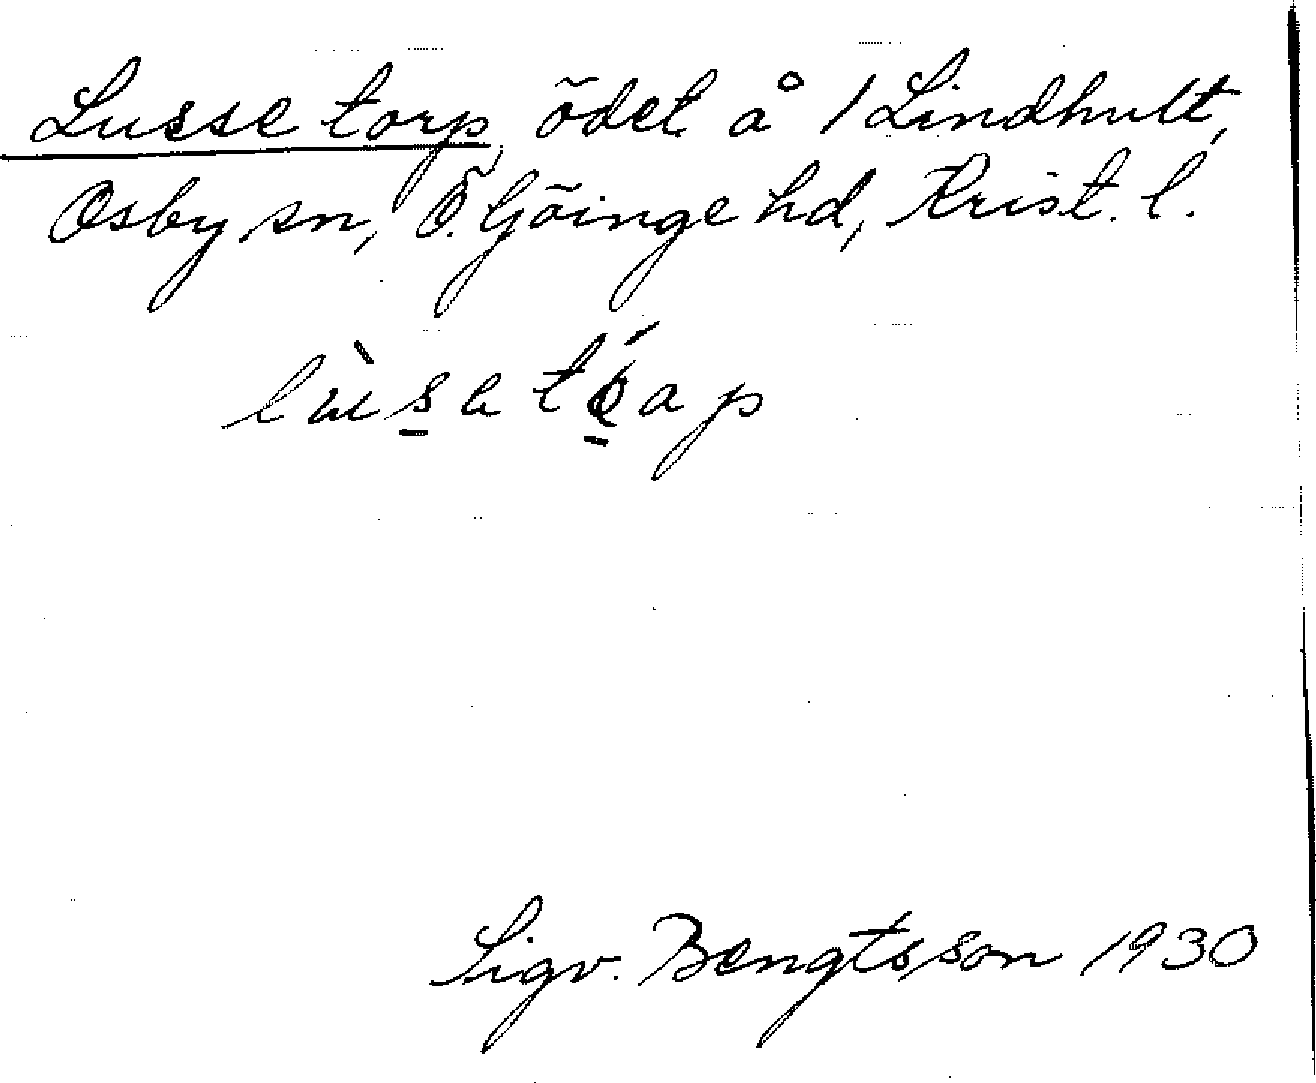 Lussetorp, ödel å 1 Lindhult,
Osby sn, Ö. Göinge hd, Krist. l.
Sigv. Bengtsson 1930